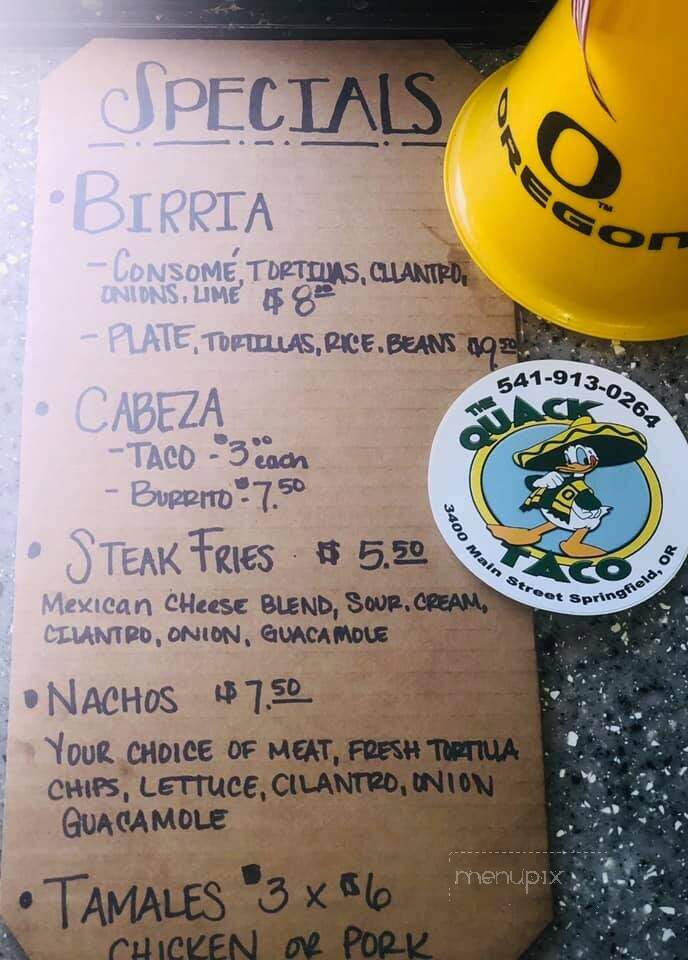 SPECIALS
• BIRRIA
- CONSOMÉ, TORTILLAS, CILANTRO,
ONIONS, LIME $8.00
- PLATE, TORTILLAS, RICE, BEANS $9.50
• CABEZA
- TACO - $3.00 each
- BURRITO - $7.50
• STEAK FRIES $5.50
MEXICAN CHEESE BLEND, SOUR, CREAM,
CILANTRO, ONION, GUACAMOLE
• NACHOS $7.50
YOUR CHOICE OF MEAT, FRESH TORTILLA
CHIPS, LETTUCE, CILANTRO, ONION
GUACAMOLE
• TAMALES $3 x $6
CHICKEN OR PORK
O
TM
OREGON
541-913-0264
THE
QUACK
O
TACO
3400 Main Street Springfield, OR
menupix